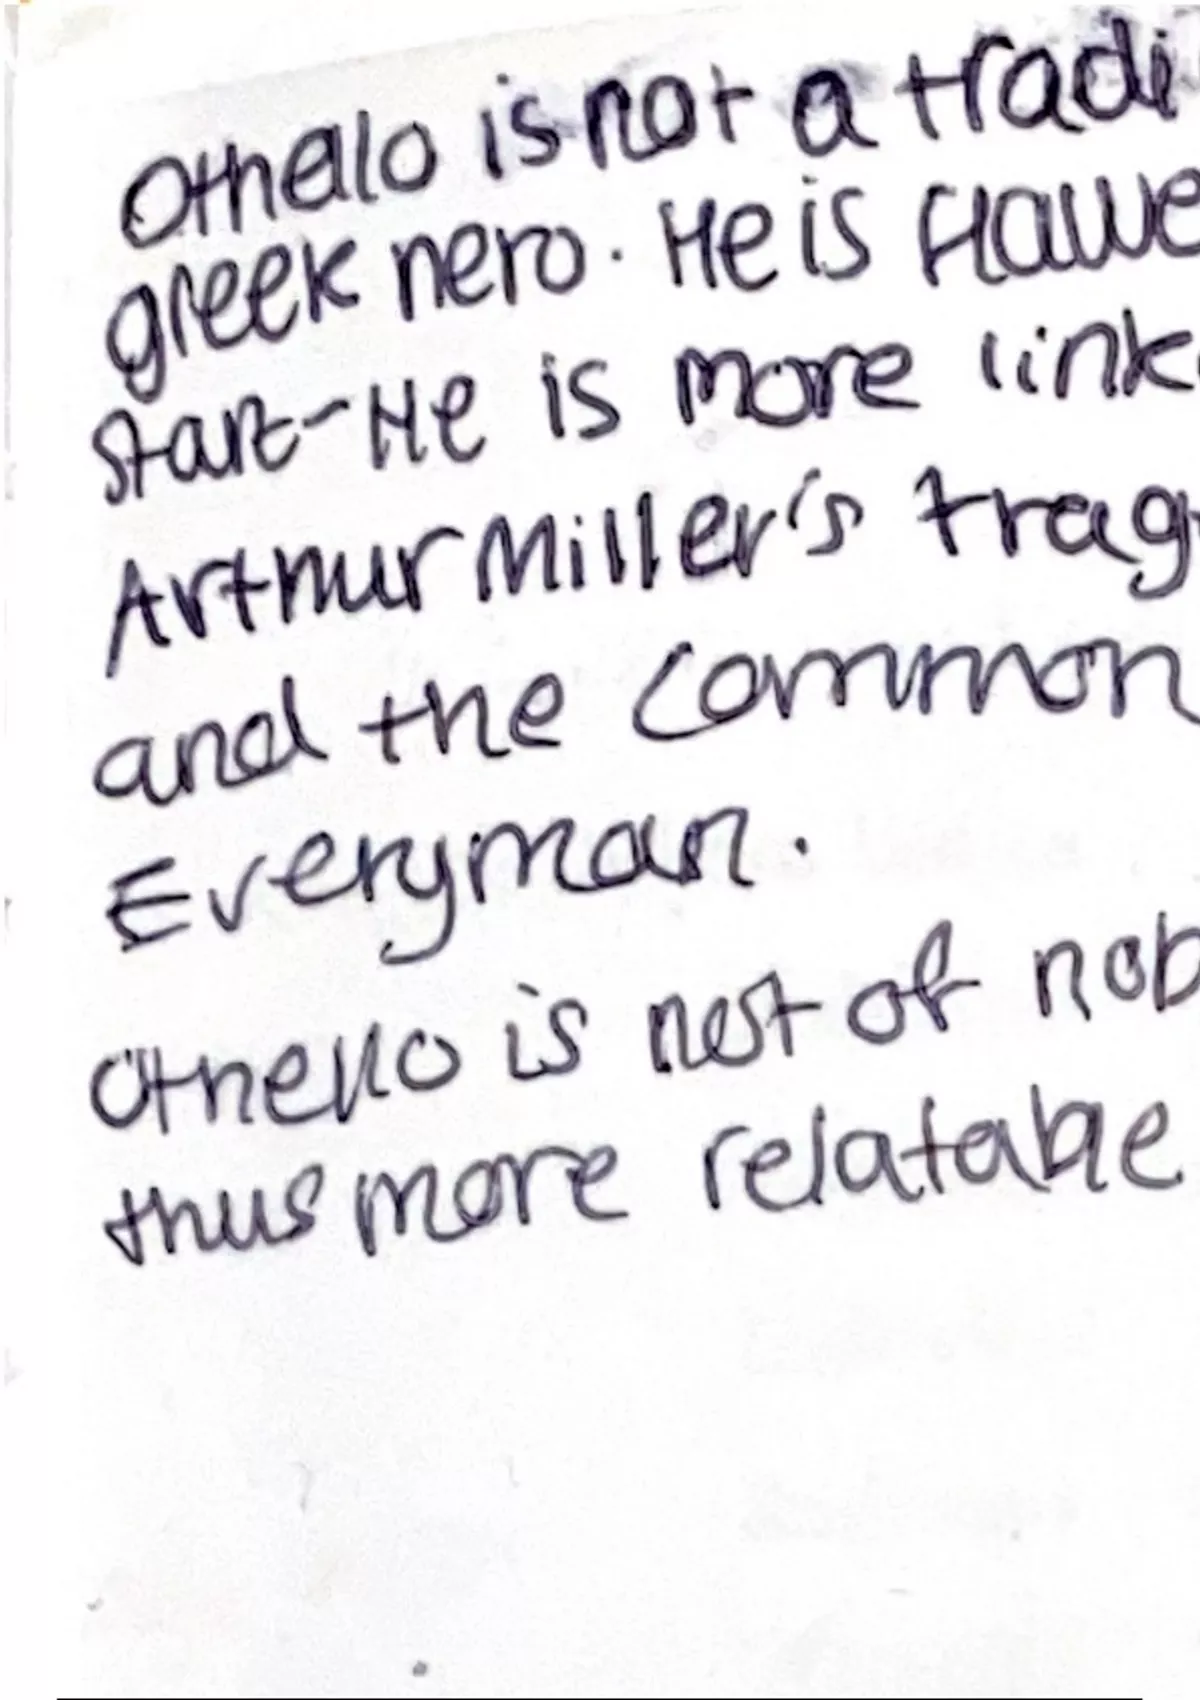 Othello is not a tradi
greek hero. He is flawe
start-He is more link
Arthur Miller's trag
and the common
Everyman.
Othello is not of nob
thus more relatable